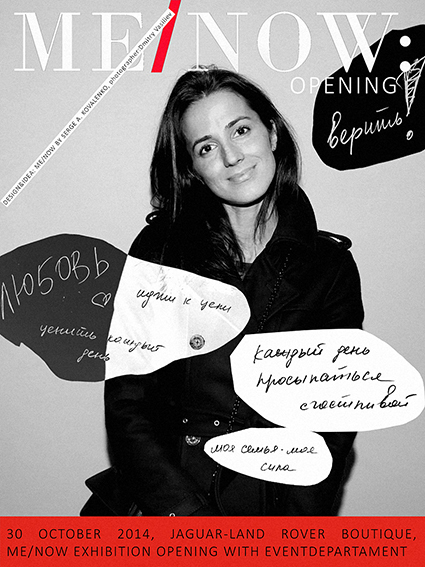 ME/NOW:
OPENING
DESIGN&IDEA: ME/NOW BY SERGE A. KOVALENKO, photographer Dmitry Vasiliev
верить!
ЛЮБОВЬ
иди к цели
ценить каждый
день
каждый день
просыпаться
счастливой
моя семья - моя
сила
30 OCTOBER 2014, JAGUAR-LAND ROVER BOUTIQUE,
ME/NOW EXHIBITION OPENING WITH EVENTDEPARTAMENT